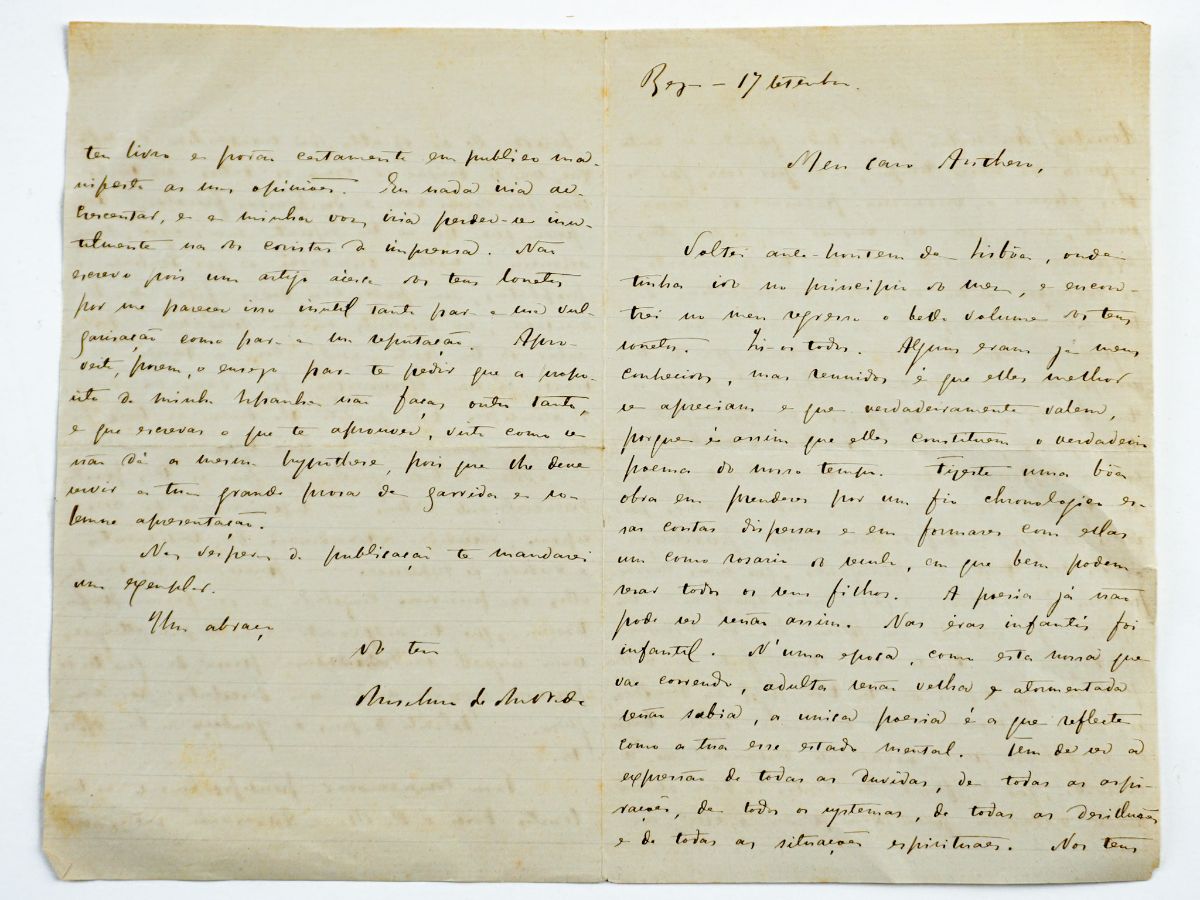 17 Setembro.
Meu caro Anthero,
Voltei ante-hontem de Lisbôa, onde
tinha ido no principio do mez, e encon-
trei no meu regresso o bello volume dos teus
sonetos. Li-os todos. Alguns eram já meus
conhecidos, mas reunidos é que elles melhor
se apreciam e que verdadeiramente valem,
porque é assim que elles constituem o verdadeiro
poema do nosso tempo. Fizeste uma bôa
obra em prenderes por um fio chronologico es-
sas contas dispersas e em formares com ellas
um como rosario do seculo, em que bem podem
resar todos os seus filhos. A poesia já não
pode ser senão assim. Nas éras infantis foi
infantil. N'uma epoca, como esta nossa que
vae correndo, adulta senão velha e atormentada
senão sabia, a unica poesia é a que reflecte
como a tua esse estado mental. Tem de ser a
expressão de todas as duvidas, de todas as aspi-
rações, de todos os systemas, de todas as desillusões
e de todas as situações espirituaes. Nos teus
teu livro e porão certamente em publico ma-
nifesta as suas opiniões. Eu nada iria ac-
crescentar, e a minha voz iria perder-se inu-
tilmente na dos coristas da imprensa. Não
escrevo pois um artigo ácerca dos teus sonetos
por me parecer isso inutil tanto para a sua vul-
garisação como para a sua reputação. Apro-
veito, porem, o ensejo para te pedir que a propo-
sito da minha Hespanha não faças outro tanto,
e que escrevas o que te aprouver, visto como se
não dá a mesma hypothese, pois que lhe deve
servir a tua grande prosa de garrida e so-
lemne apresentação.
Nas vesperas da publicação te mandarei
um exemplar.
Um abraço
do teu
Anselmo de Andrade